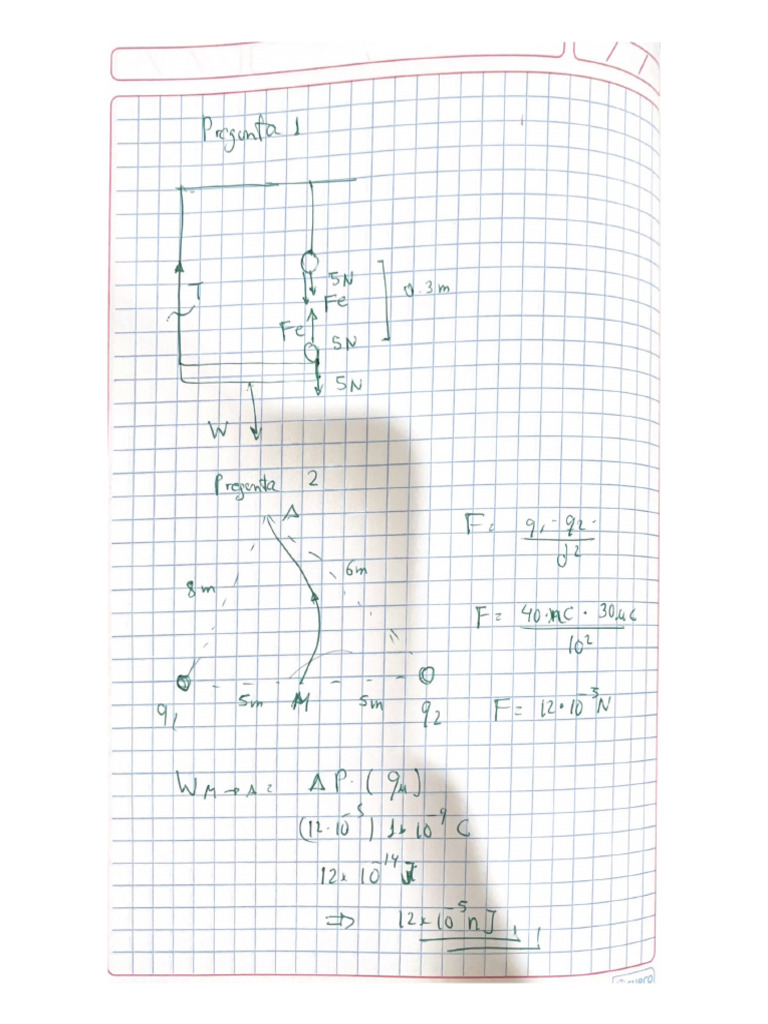 Pregunta 1
T
5N
Fe
0.3m
Fe
5N
5N
W
Pregunta 2
A
8m
6m
5m
M
5m
q1
q2
F = q1 · q2 / d²
F = 40·nC · 30μC / 10²
F = 12·10⁻⁵N
W M→A = ΔP·(qM)
(12·10⁻⁵) 1×10⁻⁹ C
12×10⁻¹⁴ J
⇒ 12×10⁻⁵ nJ